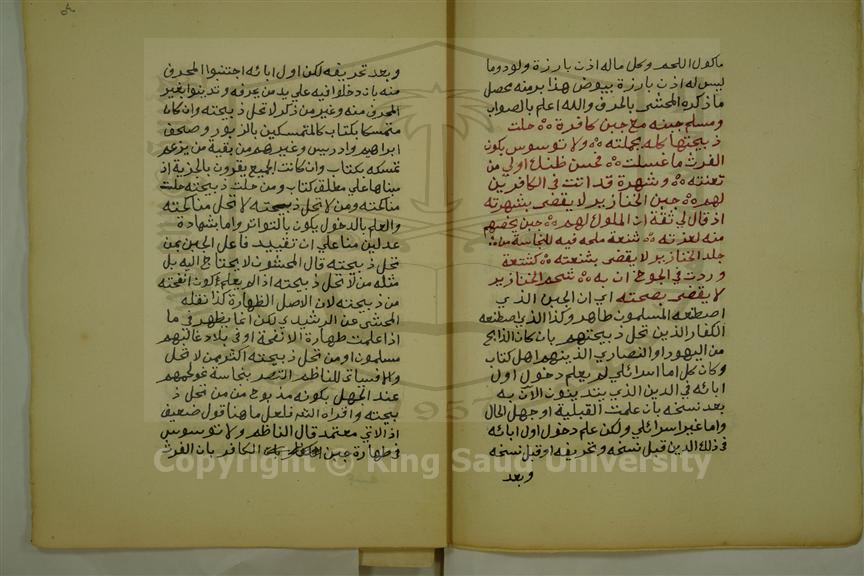 ماكول اللحم وكل ماله اذن بارزة ولود وما
ليس له اذن بارزة بيوض هذا برمنه محصل
ما ذكره المحشي بالحرف والله اعلم بالصواب
ومسلم جبنه مع جبن كافرة حلت
ذبيحتها كله بجملته ولا توسوس بكون
الفرث ما غسلت فحسن ظنك اولى من
تعنته وشهرة قد اتت في الكافرين
لهم جبن الخنازير لا يقضى بشهرته
اذ قال لي ثقة ان الملوك لهم جبن يخصهم
منه لعزته شنعة ملحه فيه للنجاسة من
جلد الخنازير لا يقضى بشنعته كشنعة
وردت في الجوخ ان به شحم الخنازير
لا يقضى بصحته اي ان الجبن الذي
اصطنعه المسلمون طاهر وكذا الذي يصطنعه
الكفار الذين تحل ذبيحتهم بان كان الذابح
من اليهود او النصارى الذين هم اهل كتاب
وكان كل اما اسرائلي لم يعلم دخول اول
ابائه في الدين الذي يتدينون الات به
بعد نسخه بان علمت القبلية او جهل الحال
واما غير اسرائلي ولكن علم دخول اول ابائه
في ذلك الدين قبل نسخه وتحريفه او قبل نسخه
وبعد
وبعد تحريفه لكن اول ابائه اجتنبوا المحرف
منه بان دخلوا فيه على يد من يحرفه وتدينوا بغير
المحرف منه وغير من ذكر لا تحل ذبيحته وان كان
متمسكا بكتاب كالمتمسكين بالزبور وصحف
ابراهيم وادريس وغيرهم من بقية من يزعم
تمسكه بكتاب وان كانت الجميع يقرون بالجزية اذ
مبناها على مطلق كتاب ومن حلت ذبيحته حلت
مناكحته ومن لا تحل ذبيحته لا تحل مناكحته
والعلم بالدخول يكون بالتواتر واما شهادة
عدلين مناعلي ان تقييد فاعل الجبن بمن
تحل ذبيحته قال المحشون لا يحتاج اليه بل
مثله من لا تحل ذبيحته اذا لم يعلم كون انفحته
من ذبيحته لان الاصل الطهارة كذا نقله
المحشي عن الرشيدي لكن انما يظهر في ما
اذا علمت طهارة الانفحة او في بلاد غالبهم
مسلمون او من تحل ذبيحته اكثر من لا تحل
والا فسياتي للناظم النص بنجاسة نحو لحمهم
عند الجهل بكونه مذبوح من من تحل ذ
بيحته واقراه الشر فلعل ما هنا قول ضعيف
اذ الاتي معتمد قال الناظم ولا توسوس
في طهارة جبن الكافر بان الفرث
Copyright © King Saud University
1957